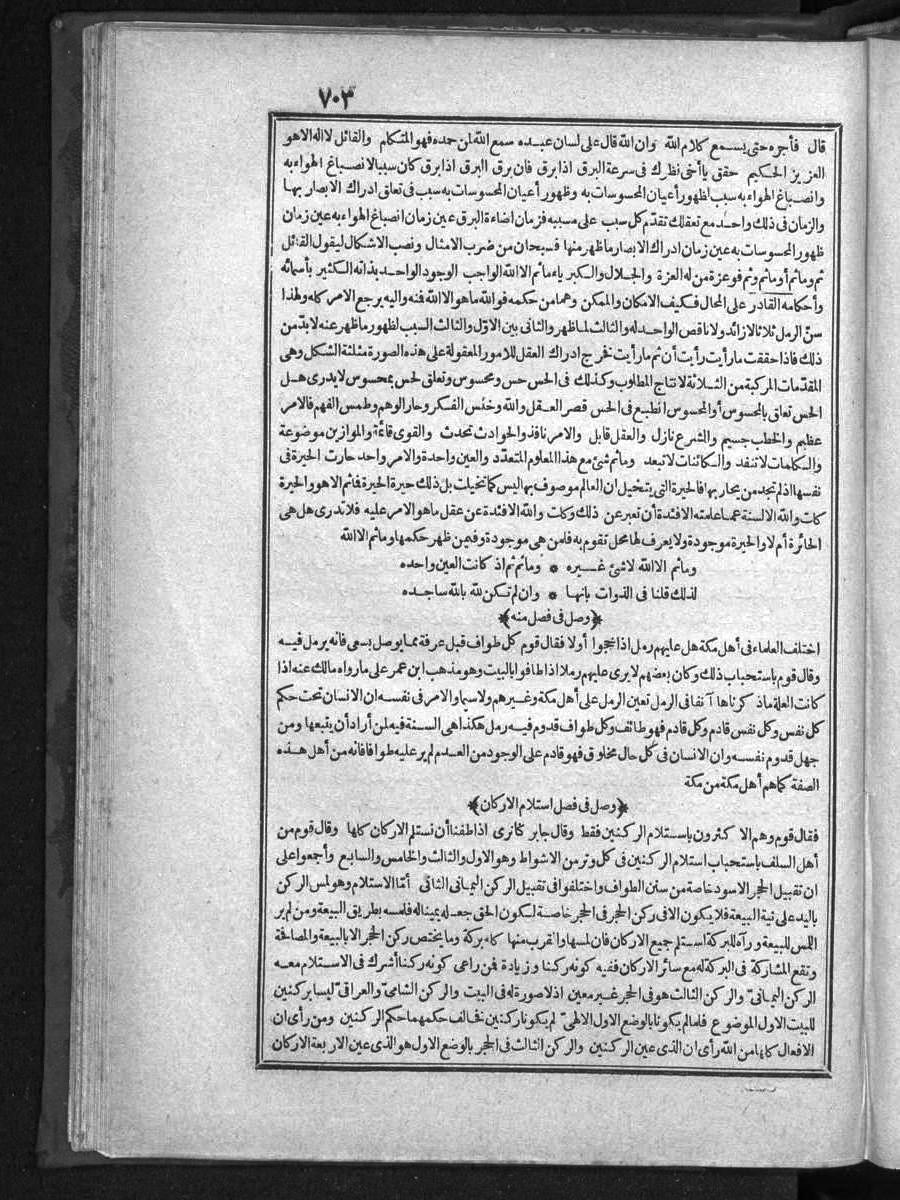 ٧٠٣
قال فأجره حتى يسمع كلام الله وان الله قال على لسان عبده سمع الله لمن حمده فهو المتكلم والقائل لا اله الا هو
العزيز الحكيم حقق يا أخى نظرك فى سرعة البرق اذا برق فان برق البرق اذا برق كان سببا لانصباغ الهواء به
وانصباغ الهواء به سبب لظهور أعيان المحسوسات به وظهور أعيان المحسوسات به سبب فى تعلق ادراك الابصار بها
والزمان فى ذلك واحد مع تعقلك تقدّم كل سبب على مسببه فزمان اضاءة البرق عين زمان انصباغ الهواء به عين زمان
ظهور المحسوسات به عين زمان ادراك الابصار ما ظهر منها فسبحان من ضرب الامثال ونصب الاشكال ليقول القائل
ثم وما ثم أو ما ثم وثم فوعزة من له العزة والجلال والكبرياء ما ثم الا الله الواجب الوجود الواحد بذاته الكثير بأسمائه
وأحكامه القادر على المحال فكيف الامكان والممكن وهما من حكمه فوالله ما هو الا الله فنه واليه يرجع الامر كله ولهذا
سنّ الرمل ثلاثا لا زائد ولا ناقص الواحد له والثالث لما ظهر والثانى بين الاوّل والثالث السبب لظهور ما ظهر عنه لابدّ من
ذلك فاذا حققت ما رأيت رأيت أن ثم ما رأيت تخرج ادراك العقل للامور المعقولة على هذه الصورة مثلثة الشكل وهى
المقدّمات المركبة من الثلاثة لانتاج المطلوب وكذلك فى الحس حس ومحسوس وتعلق لحس بمحسوس لا يدرى هل
الحس تعلق بالمحسوس أو المحسوس انطبع فى الحس قصر العقل والله وخنس الفكر وحار الوهم وطمس الفهم فالامر
عظيم والخطب جسيم والشرع نازل والعقل قابل والامر نافذ والحوادث تحدث والقوى قائمة والموازين موضوعة
والكلمات لا تنفد والكائنات لا تبعد وما ثم شئ مع هذا المعلوم المتعدّد والعين واحدة والامر واحد حارت الحيرة فى
نفسها اذ لم تجد من يحار بها فالحيرة التى يتخيل ان العالم موصوف بها ليس كما تخيلت بل ذلك حيرة الحيرة فما ثم الا هو والحيرة
كات والله الالسنة عما علمته الافئدة أن تعبر عن ذلك وكلت والله الافئدة عن عقل ما هو الامر عليه فلا تدرى هل هى
الحائرة أم لا والحيرة موجودة ولا يعرف لها محل تقوم به فلمن هى موجودة وفيمن ظهر حكمها وما ثم الا الله
وما ثم الا الله لا شئ غيره * وما ثم ثم اذ كانت العين واحده
لذلك قلنا فى الذوات بانها * وان لم تكن لله بالله ساجده
﴿وصل فى فصل منه﴾
اختلف العلماء فى أهل مكة هل عليهم رمل اذا حجوا أو لا فقال قوم كل طواف قبل عرفة مما يوصل بسعى فانه يرمل فيه
وقال قوم باستحباب ذلك وكان بعضهم لا يرى عليهم رملا اذا طافوا بالبيت وهو مذهب ابن عمر على ما رواه مالك عنه اذا
كانت العلة ما ذكرناها آنفا فى الرمل تعين الرمل على أهل مكة وغيرهم ولا سيما والامر فى نفسه ان الانسان تحت حكم
كل نفس وكل نفس قادم وكل قادم فهو طائف وكل طواف قدوم فيه رمل هكذا هى السنة فيه لمن أراد أن يتبعها ومن
جهل قدوم نفسه وان الانسان فى كل حال مخلوق فهو قادم على الوجود من العدم لم ير عليه طوافا فانه من أهل هذه
الصفة كما هم أهل مكة من مكة
﴿وصل فى فصل استلام الاركان﴾
فقال قوم وهم الاكثرون باستلام الركنين فقط وقال جابر كنا نرى اذا طفنا أن نستلم الاركان كلها وقال قوم من
أهل السلف باستحباب استلام الركنين فى كل وتر من الاشواط وهو الاول والثالث والخامس والسابع وأجمعوا على
ان تقبيل الحجر الاسود خاصة من سنن الطواف واختلفوا فى تقبيل الركن اليمانى الثانى أمّا الاستلام وهو لمس الركن
باليد على نية البيعة فلا يكون الا فى ركن الحجر فى الحجر خاصة لكون الحق جعله يمينا له فلمسه بطريق البيعة ومن لم ير
اللمس للبيعة ورآه للبركة استلم جميع الاركان فان لمسها والقرب منها كله بركة وما يختص ركن الحجر الا بالبيعة والمصافحة
وتقع المشاركة فى البركة له مع سائر الاركان ففيه كونه ركنا وزيادة فمن راعى كونه ركنا أشرك فى الاستلام معه
الركن اليمانىّ والركن الثالث هو فى الحجر غير معين اذ لا صورة له فى البيت والركن الشامىّ والعراقىّ ليسا بركنين
للبيت الاول الموضوع فلما لم يكونا بالوضع الاول الالهىّ لم يكونا ركنين فخالف حكمهما حكم الركنين ومن رأى ان
الافعال كلها من الله رأى ان الذى عين الركنين والركن الثالث فى الحجر بالوضع الاول هو الذى عين الاربعة الاركان